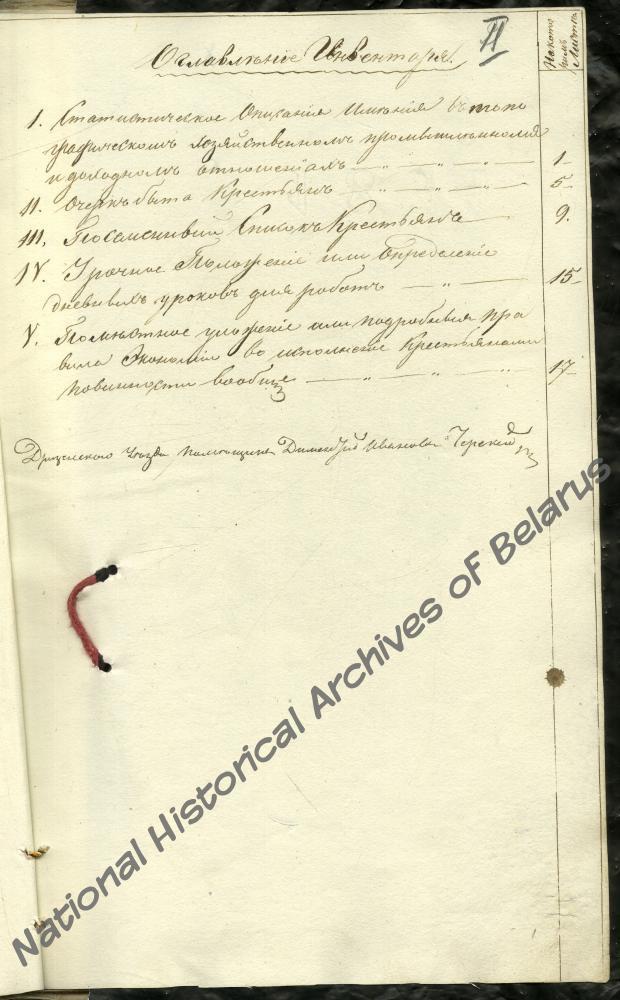 II
Оглавленіе Инвентаря.
На кото
ромъ
Листѣ
I. Статистическое Описаніе Имѣнія въ топо
графическомъ хозяйственномъ промышленномъ
и доходномъ отношеніяхъ — „ — „ — „ — 1
II. Очеркъ быта Крестьянъ — „ — „ — 5
III. Посемейный Списокъ Крестьянъ — 9.
IV. Урочное Положеніе или Опредѣленіе
дневныхъ уроковъ для работъ — „ — 15
V. Помѣстное уложеніе или подробныя пра
вила Экономіи во исполненіе Крестьянами
повинности вообще — „ — „ — „ 17
Дриссенскаго Уѣзда помѣщикъ Дмитрій Ивановъ Черскій
National Historical Archives of Belarus